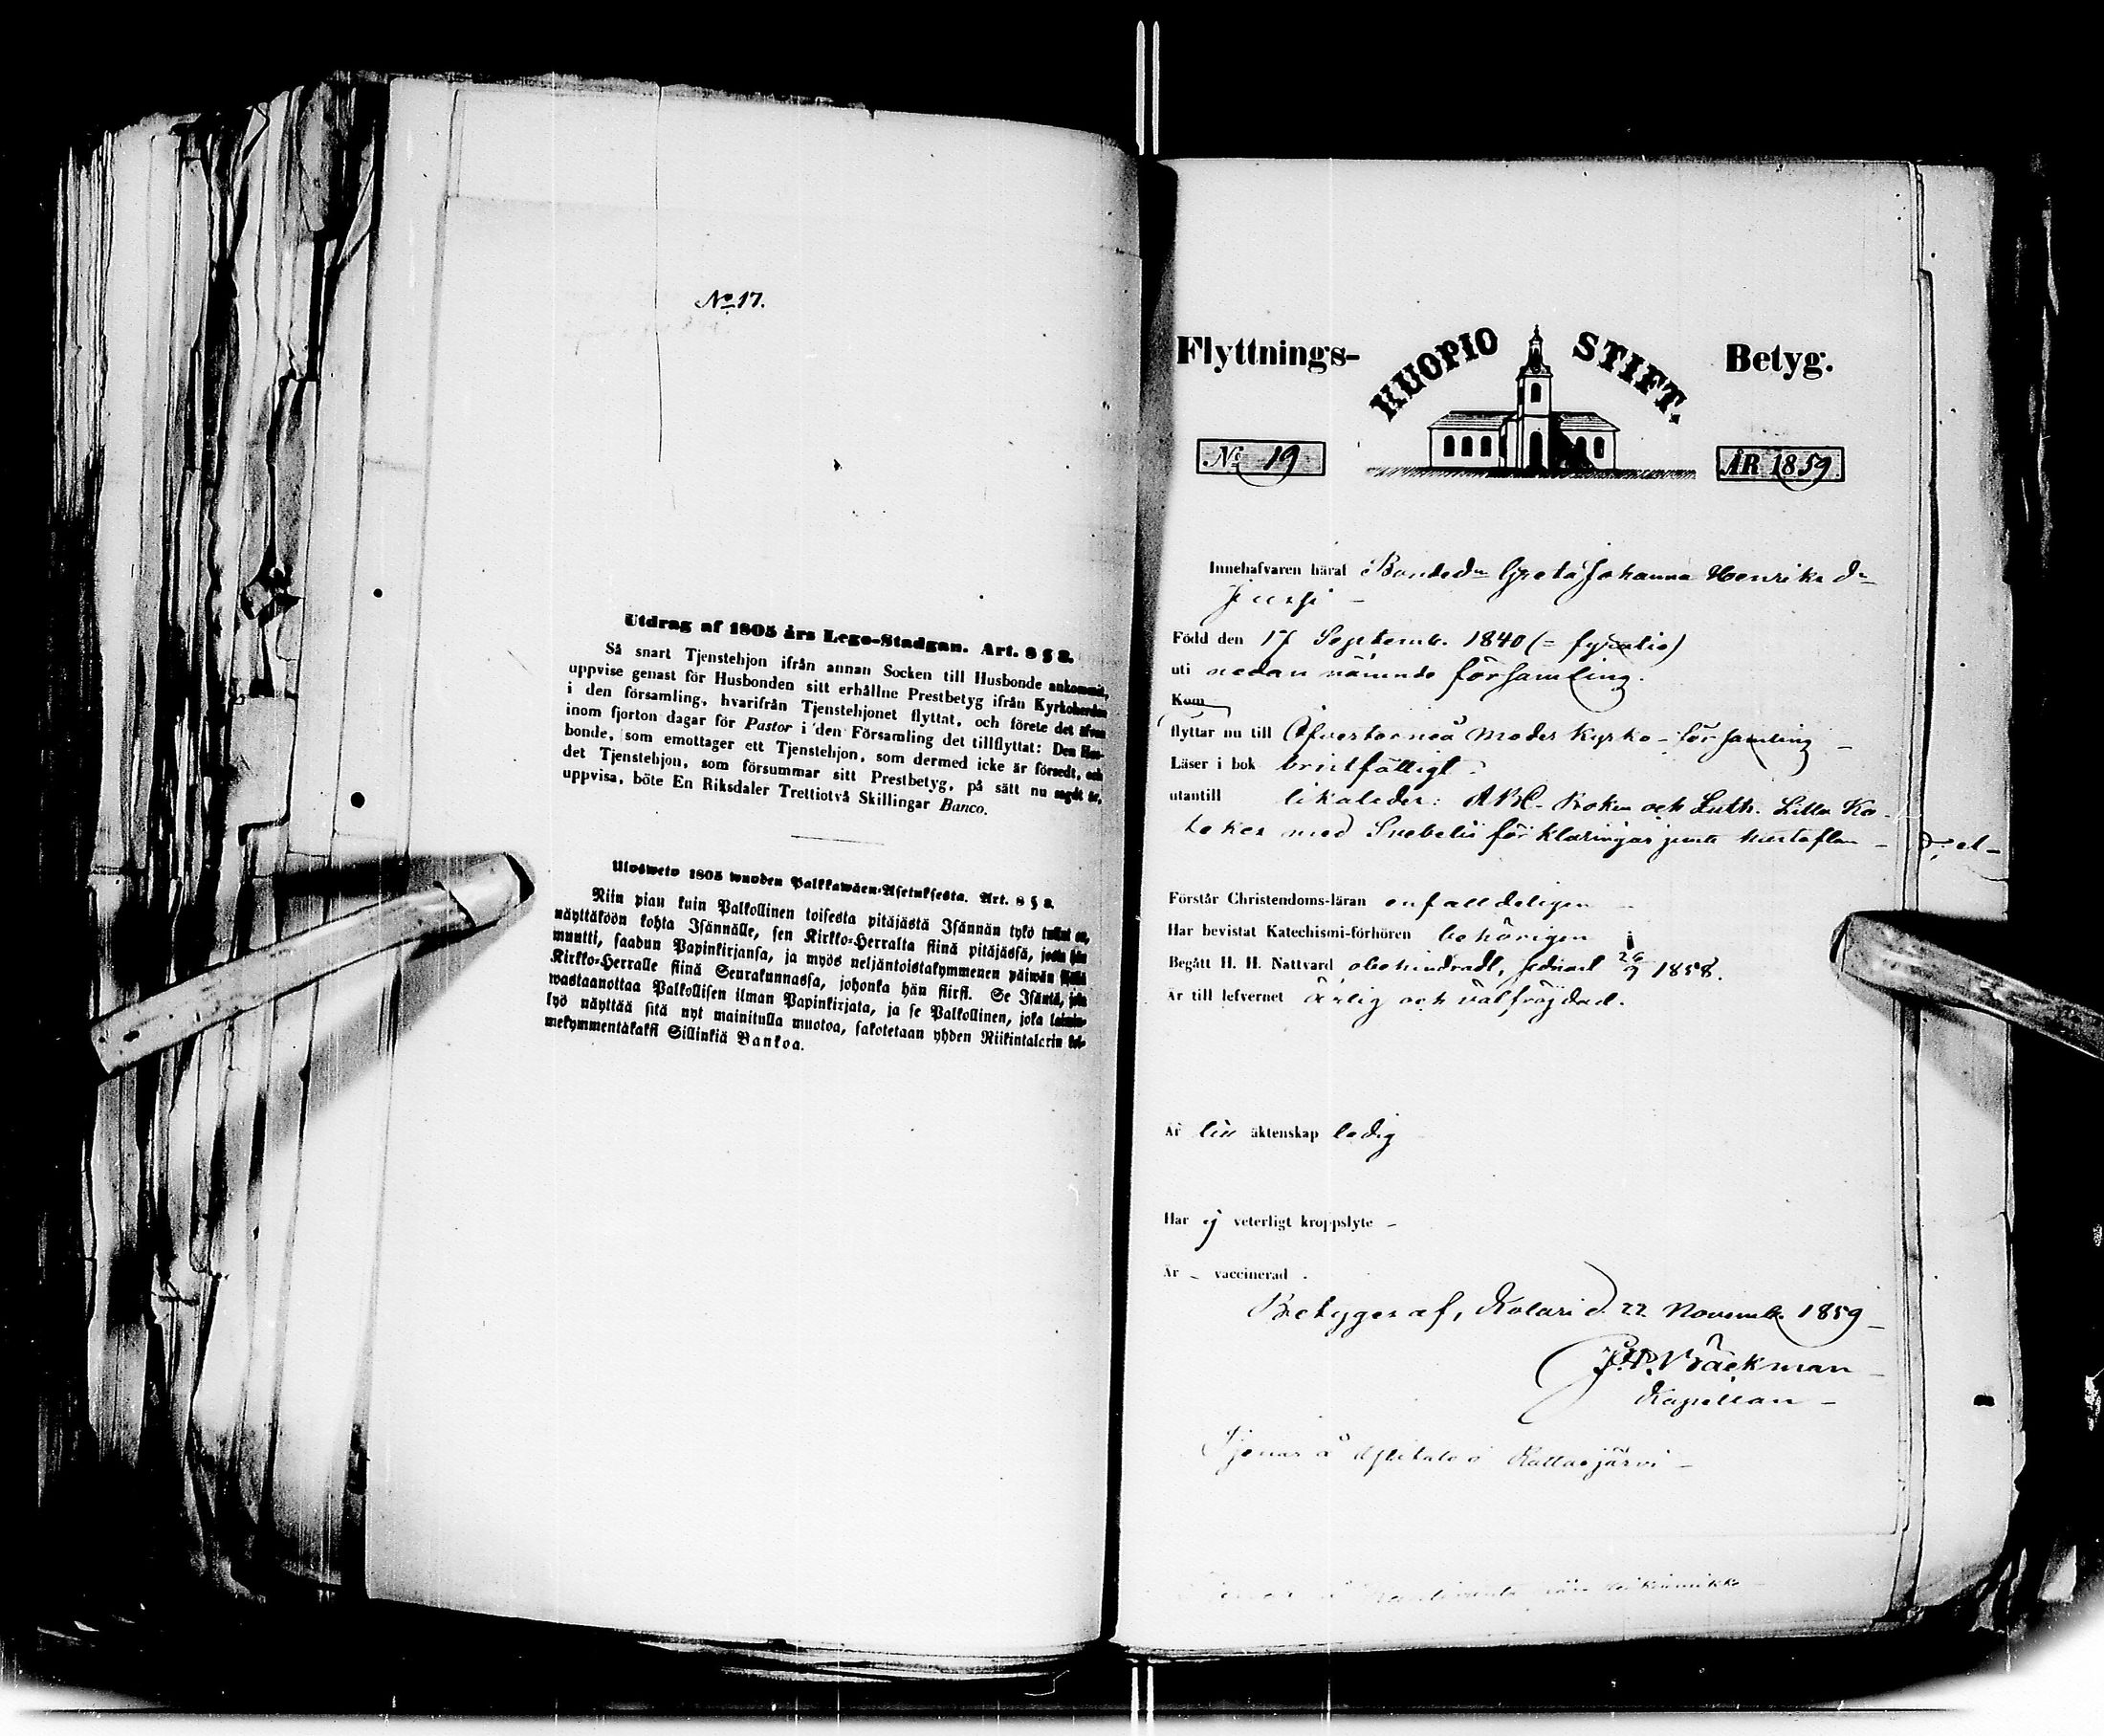 No 17.
Utdrag af 1805 års Lego-Stadgan. Art. 8 § 8.
Så snart Tjenstehjon ifrån annan Socken till Husbonde ankommit,
uppvise genast för Husbonden sitt erhållne Prestbetyg ifrån Kyrkoherden
i den församling, hvarifrån Tjenstehjonet flyttat, och förete det äfven
inom fjorton dagar för Pastor i den Församling det tillflyttat: Den Hus-
bonde, som emottager ett Tjenstehjon, som dermed icke är försedt, och
det Tjenstehjon, som försummar sitt Prestbetyg, på sätt nu sagdt är,
uppvisa, böte En Riksdaler Trettiotvå Skillingar Banco.
Ulosweto 1805 wuoden Palkkawäen-Asetuksesta. Art. 8 § 8.
Niin pian kuin Palkollinen toisesta pitäjästä Isännän tykö tullut on,
näyttäköön kohta Isännälle, sen Kirkko-Herralta siinä pitäjässä, josta hän
muutti, saadun Papinkirjansa, ja myös neljäntoistakymmenen päiwän
Kirkko-Herralle siinä Seurakunnassa, johonka hän siirsi. Se Isäntä, joka
wastaanottaa Palkollisen ilman Papinkirjata, ja se Palkollinen, joka laimin-
lyö näyttää sitä nyt mainitulla muotoa, sakotetaan yhden Riikintalarin kol-
mekymmentäkaksi Sillinkiä Bankoa.
Flyttnings- KUOPIO STIFT. Betyg.
No 19 ÅR 1859
Innehafvaren häraf Bonded:n Greta Johanna Henriks d:n
Född den 17 Septemb. 1840 (= fyratio)
uti nedan nämnde församling.
Kom
flyttar nu till Öfvertorneå Moder kyrko-församling
Läser i bok
utantill likaledes: ABC-Boken och Luth. Lilla Ka-
teket med Svebelii förklaringar jemte hustaflan
Förstår Christendoms-läran enfalldeligen
Har bevistat Katechismi-förhören behörigen
Begått H. H. Nattvard obehindradt, sednast 26/9 1858.
Är till lefvernet ärlig och välfräjdad.
Är till äktenskap ledig
Har ej veterligt kroppslyte -
Är - vaccinerad.
Betygger af, Kolari d. 22 Novemb. 1859
Bäckman
Kapellan
Tjenar å Kallasjärvi